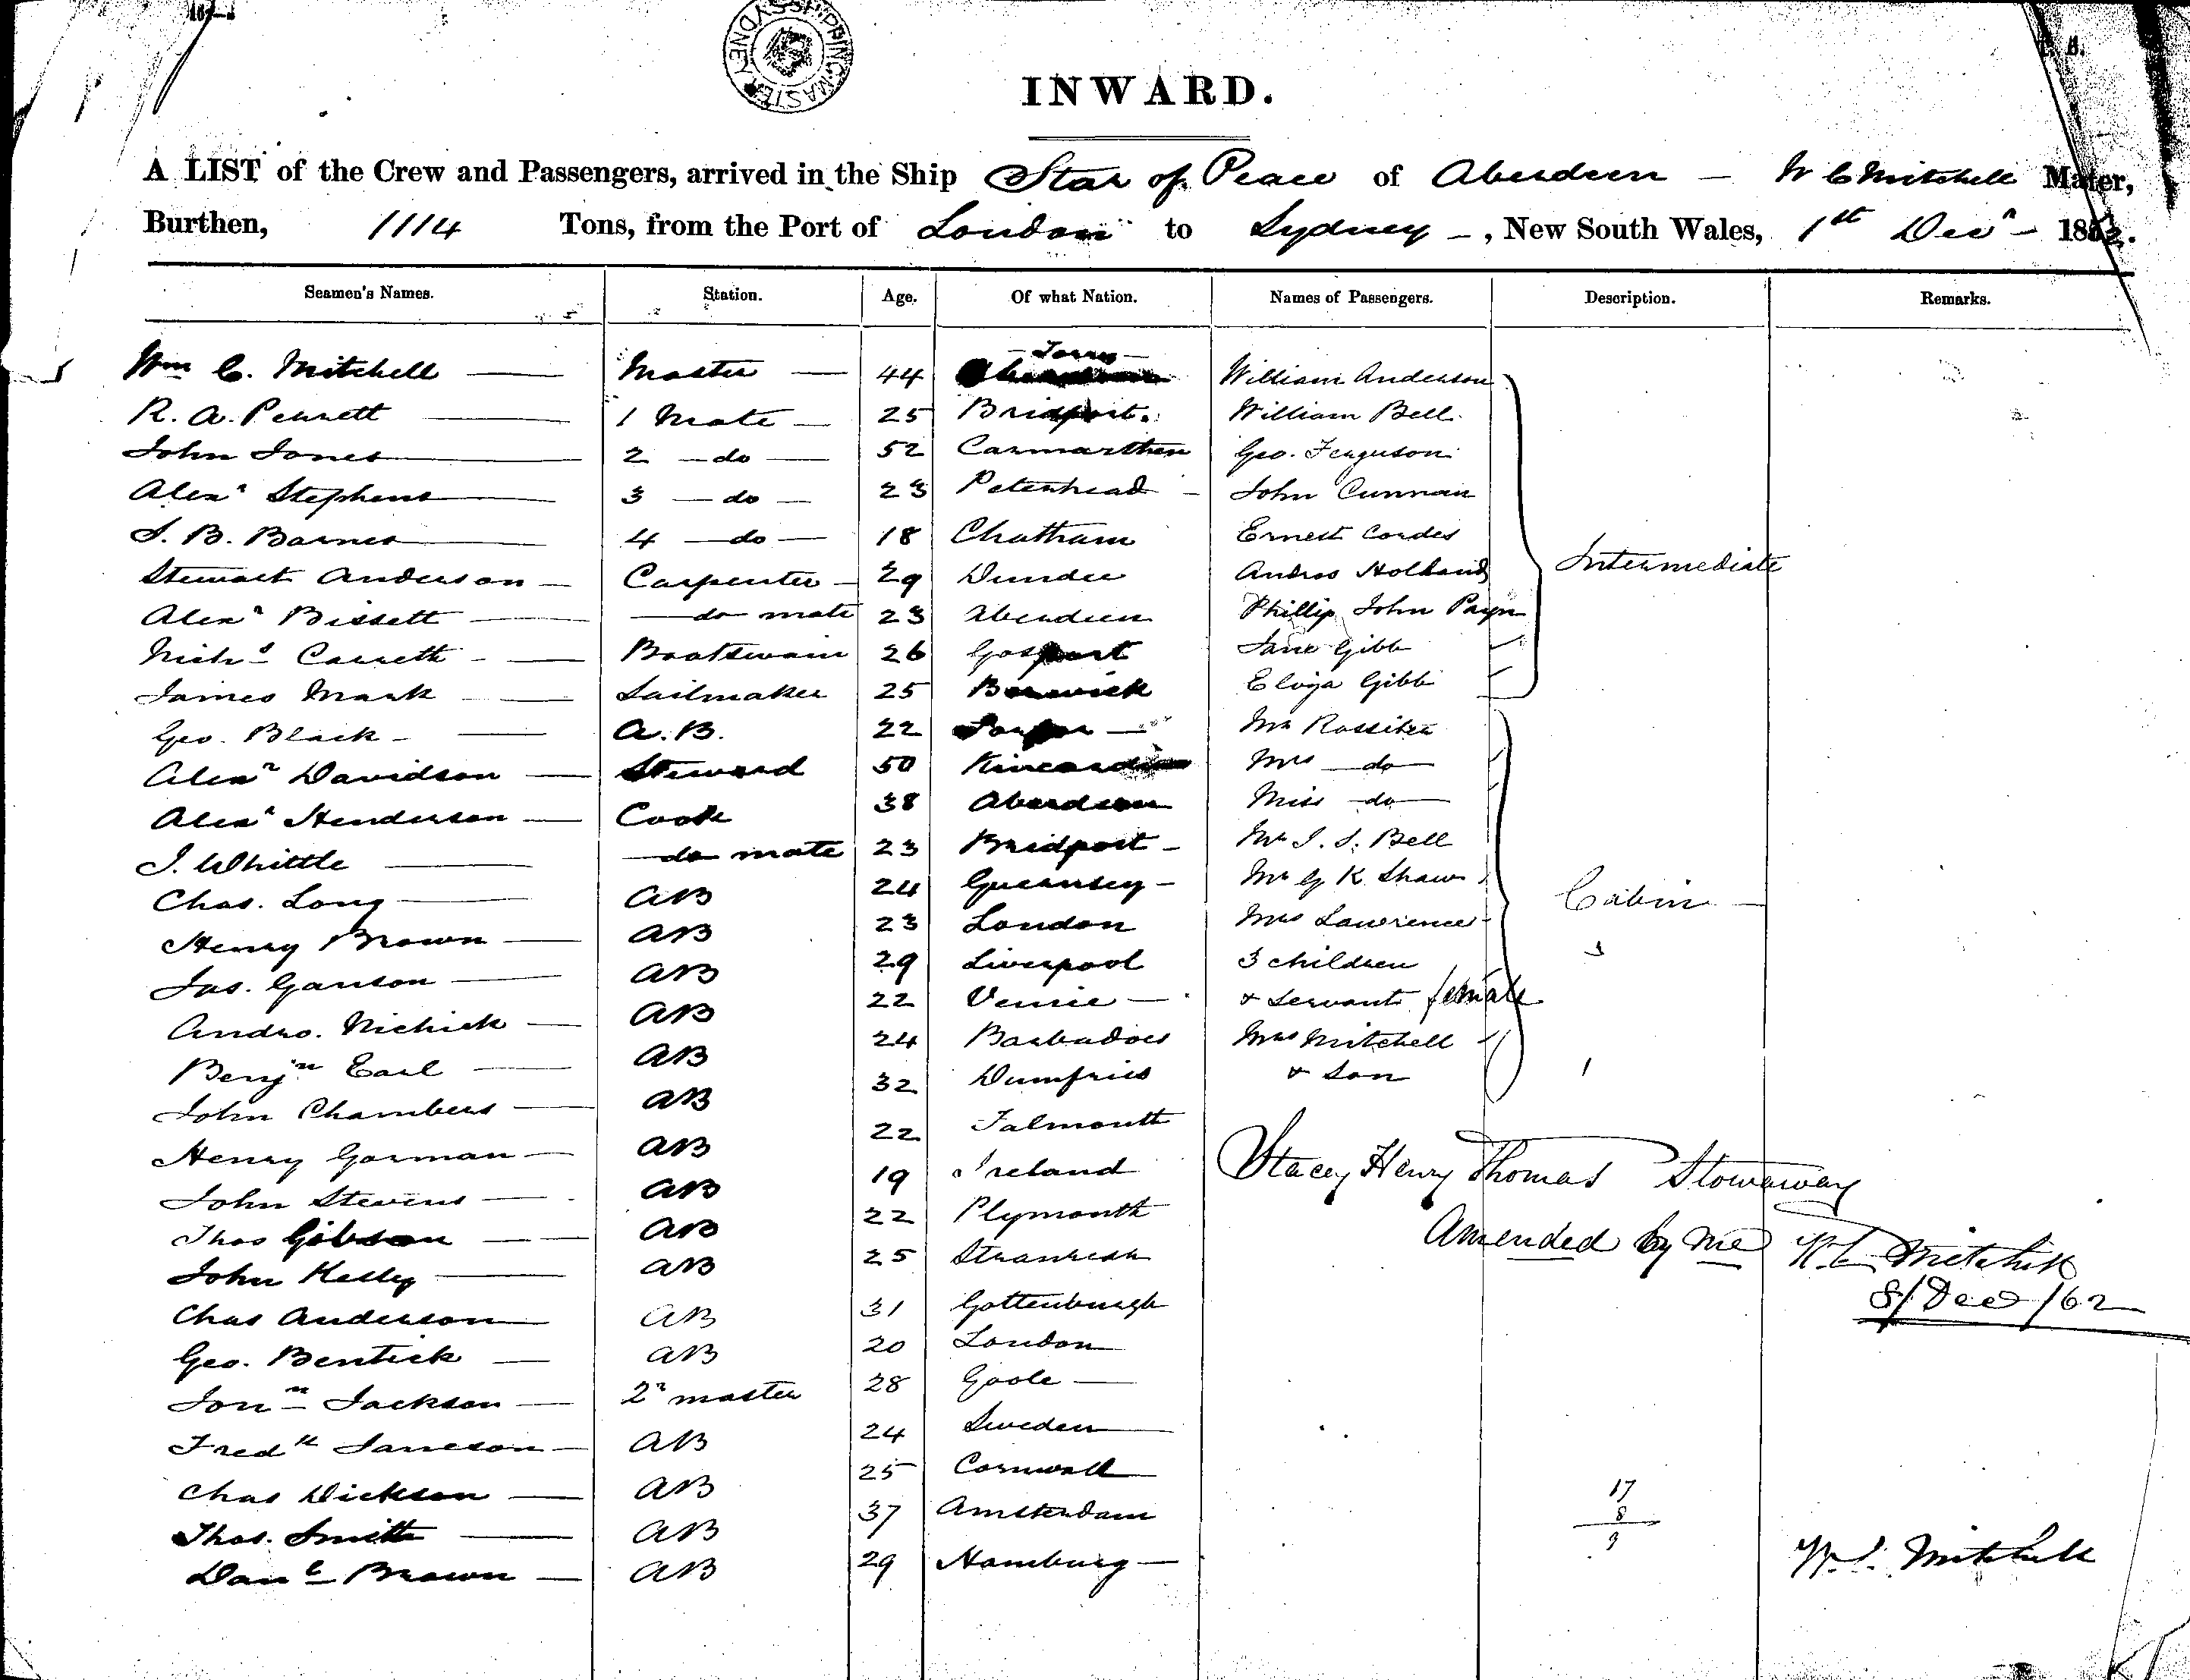 SHIPPING MASTER SYDNEY
INWARD.
A LIST of the Crew and Passengers, arrived in the Ship Star of Peace of Aberdeen — W C Mitchell Master,
Burthen, 1114 Tons, from the Port of London to Sydney —, New South Wales, 1st Decr — 1862.
Seamen's Names. Station. Age. Of what Nation. Names of Passengers. Description. Remarks.
Torry
Wm C. Mitchell Master 44 William Anderson
R. A. Penrett 1 Mate 25 Bridport. William Bell
John Jones 2 do 52 Carmarthen Geo. Ferguson
Alexr Stephens 3 do 23 Peterhead John Cunnan
J. B. Barnes 4 do 18 Chatham Ernest Cordes
Stewart Anderson Carpenter 29 Dundee Andros Holland Intermediate
Alexr Bissett do mate 23 Aberdeen Phillip John Payn
Nichs Carreth Boatswain 26 Gosport Jane Gibb
James Mark Sailmaker 25 Berwick Eliza Gibb
Geo. Black A.B. 22 Mr Rossiter
Alexr Davidson Steward 50 Kincardine Mrs do
Alexr Henderson Cook 38 Aberdeen Miss do
J. Whittle do mate 23 Bridport Mr J. S. Bell
Chas. Long AB 24 Guernsey Mr G K Shaw Cabin
Henry Brown AB 23 London Mrs Lawrence
Jas. Ganson AB 29 Liverpool 3 children 3
Andro. Nichick AB 22 Venice & Servant female
Benjn Earl AB 24 Barbadoes Mrs Mitchell
John Chambers AB 32 Dumfries & Son 1
Henry Gorman AB 22 Falmouth
John Stevens AB 19 Ireland Stacey Henry Thomas Stowaway
Thos Gibson AB 22 Plymouth Amended by me W C Mitchell
John Kelly AB 25 Stranrear 8/Dec/62
Chas Anderson AB 31 Gottenburgh
Geo. Bentick AB 20 London
Jonn Jackson 2r master 28 Goole
Fredk Janeson AB 24 Sweden
Chas Dickson AB 25 Cornwall 17
Thos. Smith AB 37 Amsterdam 8
Danl Brown AB 29 Hamburg 9 W. C. Mitchell